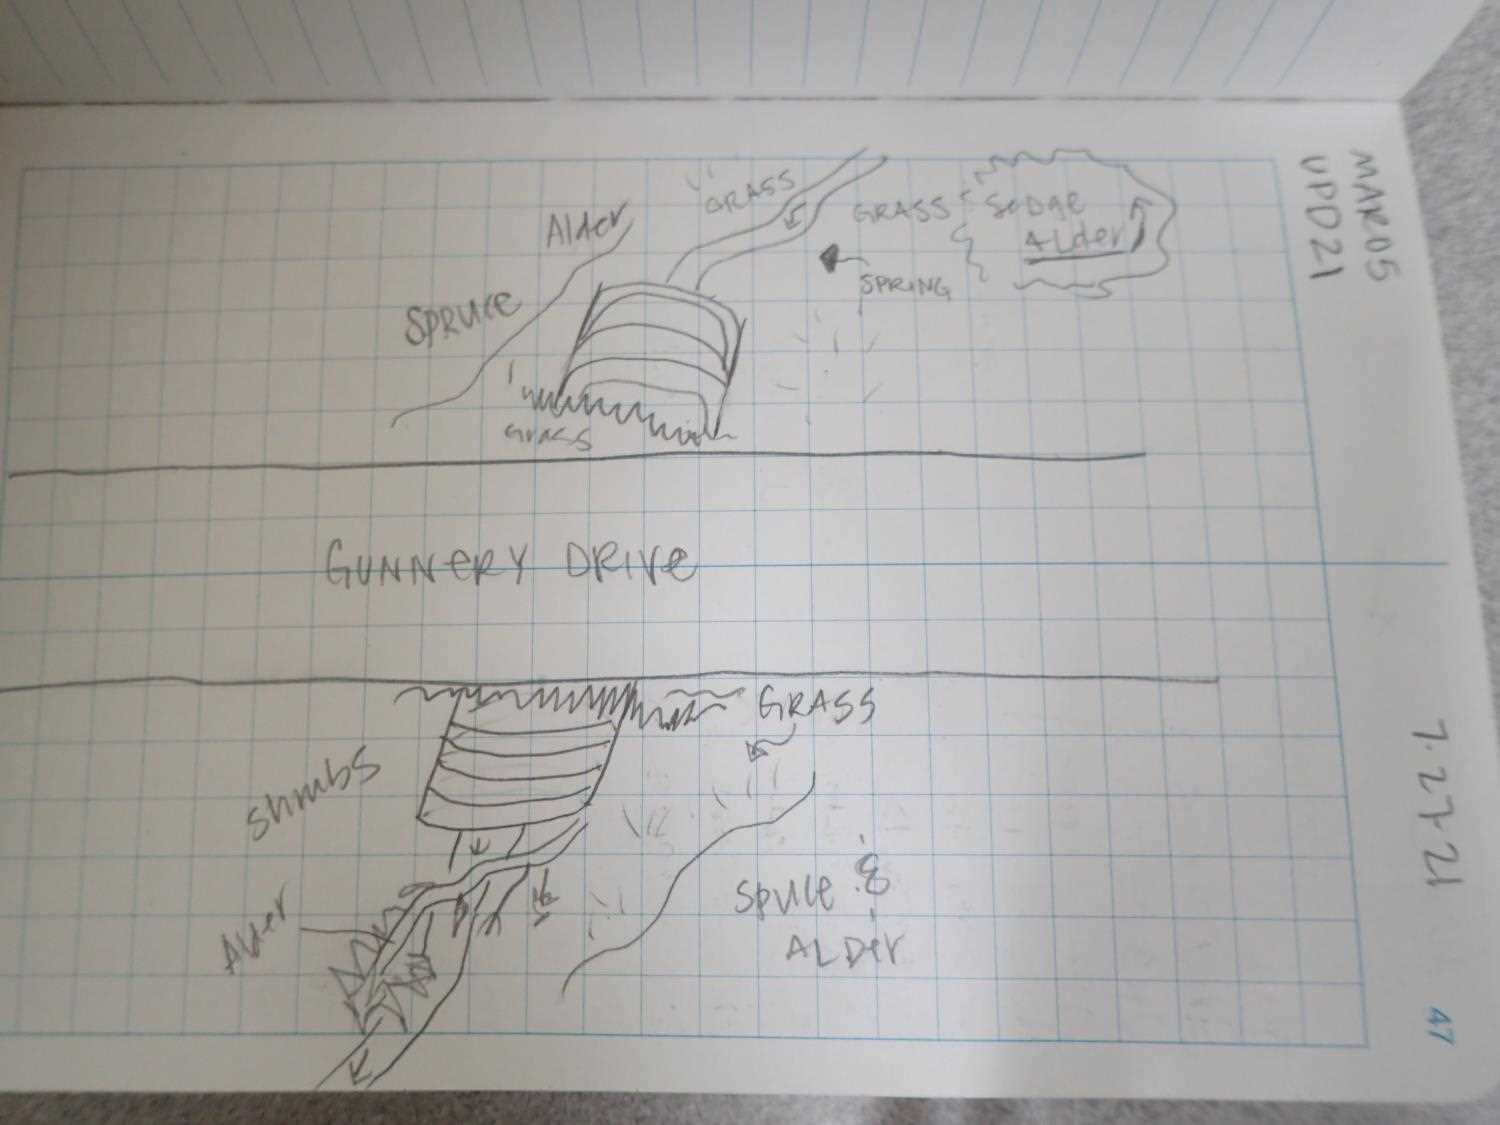 MAR05
UPD21
7.27.21
47
Alder
GRASS
GRASS
Sedge
Alder
SPRUCE
SPRING
Grass
GUNNERY DRIVE
GRASS
Shrubs
Alder
Spruce &
ALDER